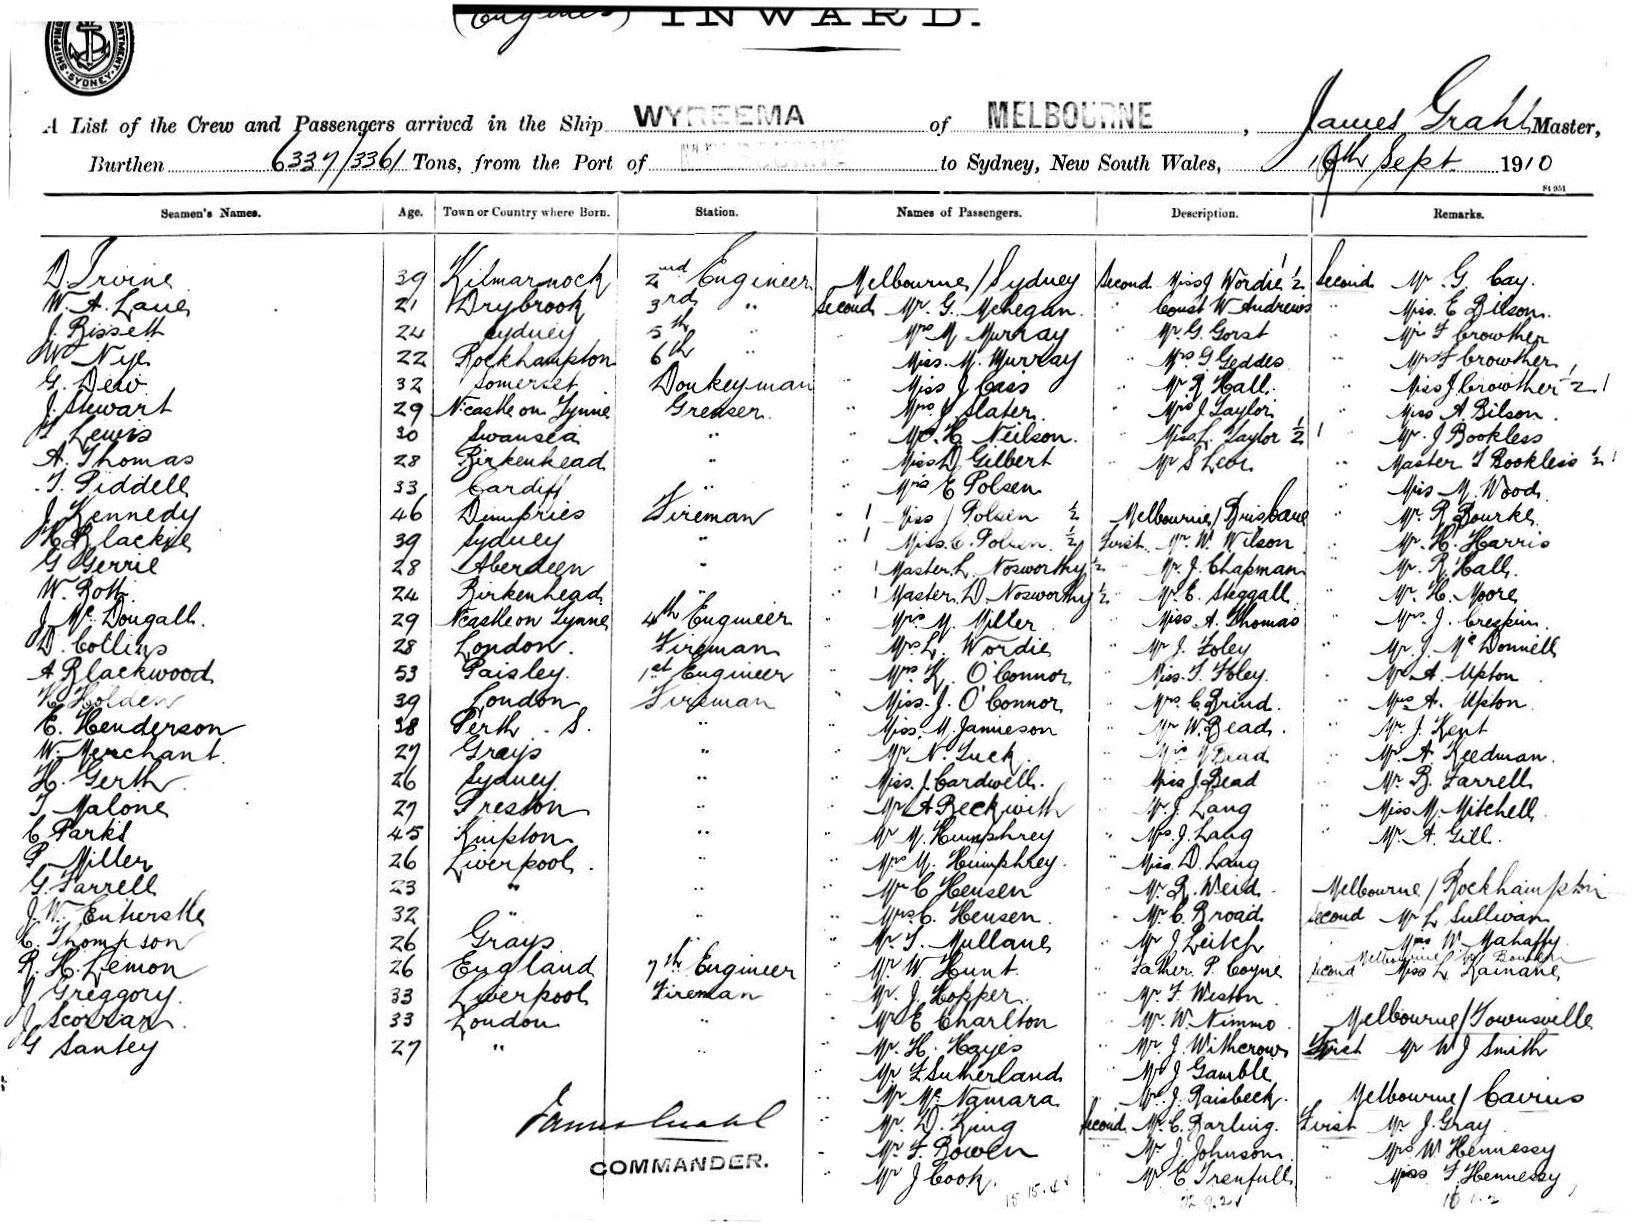 (Engines) INWARD.
SHIPPING DEPARTMENT SYDNEY
A List of the Crew and Passengers arrived in the Ship WYREEMA of MELBOURNE, James Grahl Master,
Burthen 6337/3361 Tons, from the Port of to Sydney, New South Wales, Sept. 1910
St 951
Seamen's Names. Age. Town or Country where Born. Station. Names of Passengers. Description. Remarks.
D Irvine 39 Kilmarnock 2nd Engineer Melbourne/Sydney Second Miss J Wordie 1/2 Second Mr G. Cay.
W. A. Lane 21 Drybrook 3rd " Second Mr. G. Mehegan. " Const W Andrews " Miss. E Bilson.
J. Bissett 24 Sydney 5th " " Mrs M Murray " Mr G Gorst " Mr F Crowther
W Nye 22 Rockhampton 6th " " Miss. M. Murray " Mrs G Geddes " Mrs F Crowther
G. Dew 32 Somerset Donkeyman " Miss J Cass " Mr R Hall. " Miss J Crowther 1/2 1
J. Stewart 29 N'castle on Tynne Greaser. " Mrs J Slater. " Mrs J Taylor " Miss A Bilson.
Lewis 30 Swansea " " Mr. H. Neilson. " Miss L. Taylor 1/2 1 " Mr. J Bookless
A. Thomas 28 Birkenhead " " Miss D Gilbert " Mr S Leor " Master T Bookless 1/2 1
T. Piddell 33 Cardiff " " Mrs E Polsen " Miss M. Wood
J. Kennedy 46 Dumfries Fireman " 1 Miss J Polsen 1/2 Melbourne/Brisbane " Mr. R Bourke
Blackye 39 Sydney " " 1 Miss. C. Polsen. 1/2 First. Mr. W. Wilson " Mr. H. Harris
G Gerrie 28 Aberdeen " " 1 Master. L. Nosworthy 1/2 " Mr. J. Chapman " Mr. R. Hall.
W. Rott 24 Birkenhead " 1 Master. D Nosworthy 1/2 " Mr. E. Steggall " Mr. H. Moore
J. McDougall. 29 N'castle on Tynne 4th Engineer " Mrs M. Miller " Miss. A. Thomas " Mrs. J. Crespin.
D. Collins 28 London. Fireman " Mrs L. Wordie " Mr. J. Foley " Mr. J. McDonnell
A Blackwood 53 Paisley. 1st Engineer " Mrs. K. O'Connor " Miss. T. Foley. " Mr A. Upton
H Holden 39 London Fireman " Miss. J. O'Connor " Mrs. C Brind. " Mrs A. Upton.
E. Henderson 38 Perth. S. " " Miss. M. Jamieson " Mr W. Bead. " Mr. J. Kent
W. Merchant 27 Grays " " Mr N. Tuck. " Bead " Mr. A. Reedman.
H. Gerth. 26 Sydney. " " Miss. J. Cardwell. " Miss J. Bead " Mr. B. Farrell
T Malone 27 Preston " " Mr A Beckwith " Mr. J. Lang " Miss M. Mitchell
C Parks 45 Kimpton " " Mr M. Humphrey " Mrs. J. Lang " Mr. A. Gill.
P. Miller 26 Liverpool. " " Mrs M. Humphrey. " Miss D. Lang
G. Farrell 23 " " " Mr C Hensen " Mr. R. Weid. Melbourne/Rockhampton
J. W. Entwistle 32 " " " Mrs. C. Hensen. " Mr. C. Broad Second Mr L Sullivan
C. Thompson 26 Grays " " Mr. T. Mullane " Mr J Leitch " Mrs W. Mahaffy.
R. H. Lemon 26 England 7th Engineer " Mr. W. Hunt. " Father. P. Coyne Second Miss L
J. Greggory. 33 Liverpool Fireman " Mr. J. Hopper. " Mr. F. Weston.
J. 33 London " " Mr E Charlton " Mr. W. Nimmo. Melbourne/Townsville
G Santey 27 " " " Mr. H. Hayes " Mr. J. Withcrow First Mr W J Smith
" Mr. F. Sutherland " Mr J Gamble
" Mr McNamara " Mr. J. Raisbeck. Melbourne/Cairns
James Grahl " Mr. D. King Second Mr. C. Barling. First Mr. J. Gray.
COMMANDER. " Mr. F. Bowen " Mr J Johnson " Mrs W Hennessy
" Mr J Cook. " Mr C Trenfull " Miss F Hennessy